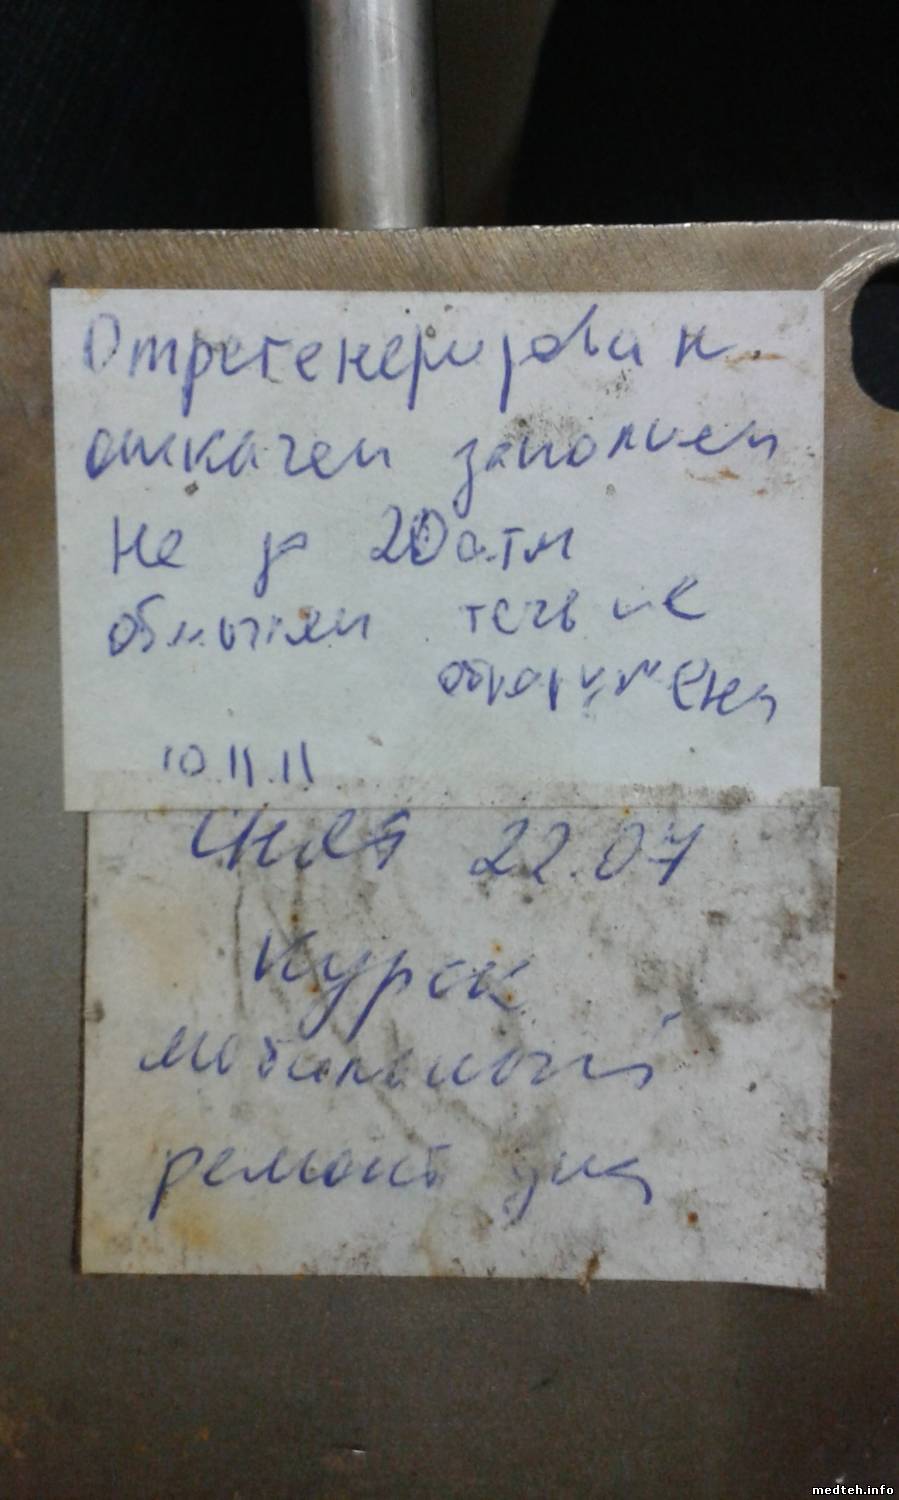 Отрегенерирован
откачен заполнен
Не до 20 атм
обмылен течь не
обнаружена
10.11.11
Снят 22.07
Курск
мобильный
ремонт
medteh.info